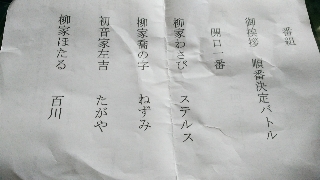 番組
御挨拶 順番決定バトル
開口一番
柳家わさび ステルス
柳家喬の字 ねずみ
初音家左吉 たがや
柳家ほたる 百川